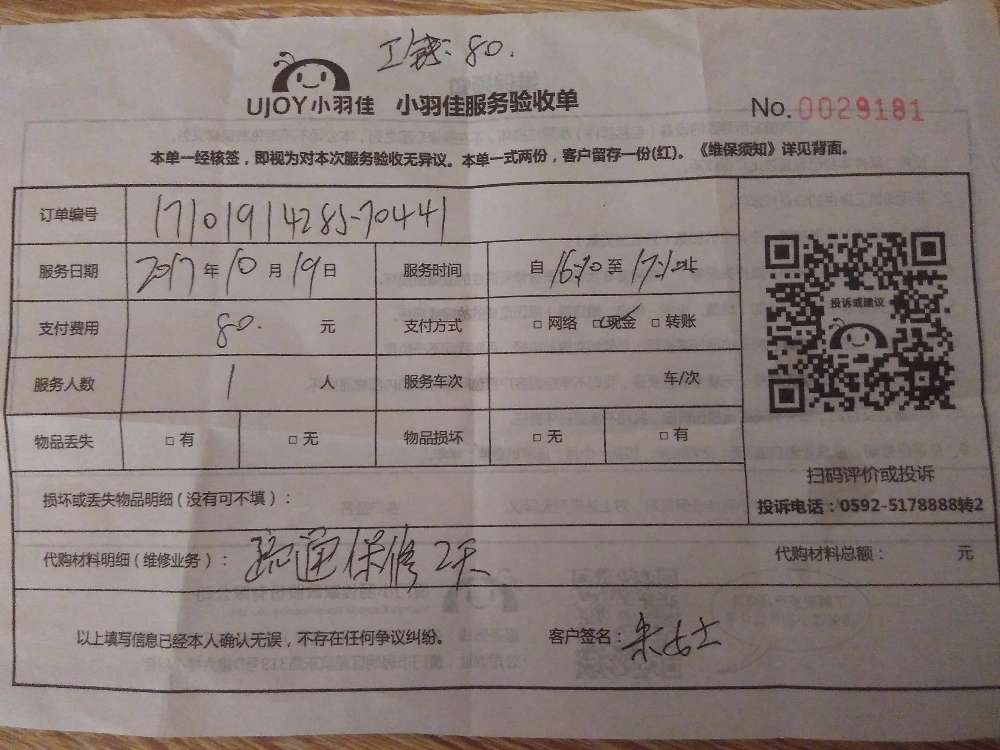 工钱: 80.
UJOY小羽佳 小羽佳服务验收单 No.0029181
本单一经核签，即视为对本次服务验收无异议。本单一式两份，客户留存一份(红)。《维保须知》详见背面。
订单编号 171019114285-70441
服务日期 2017年10月19日 服务时间 自 16:10 至
支付费用 80. 元 支付方式 □ 网络 □ 现金 □ 转账
投诉或建议
服务人数 1 人 服务车次 车/次
物品丢失 □ 有 □ 无 物品损坏 □ 无 □ 有
扫码评价或投诉
损坏或丢失物品明细（没有可不填）：
投诉电话：0592-5178888转2
代购材料明细（维修业务）： 疏通保修2天 代购材料总额： 元
以上填写信息已经本人确认无误，不存在任何争议纠纷。 客户签名： 朱女士